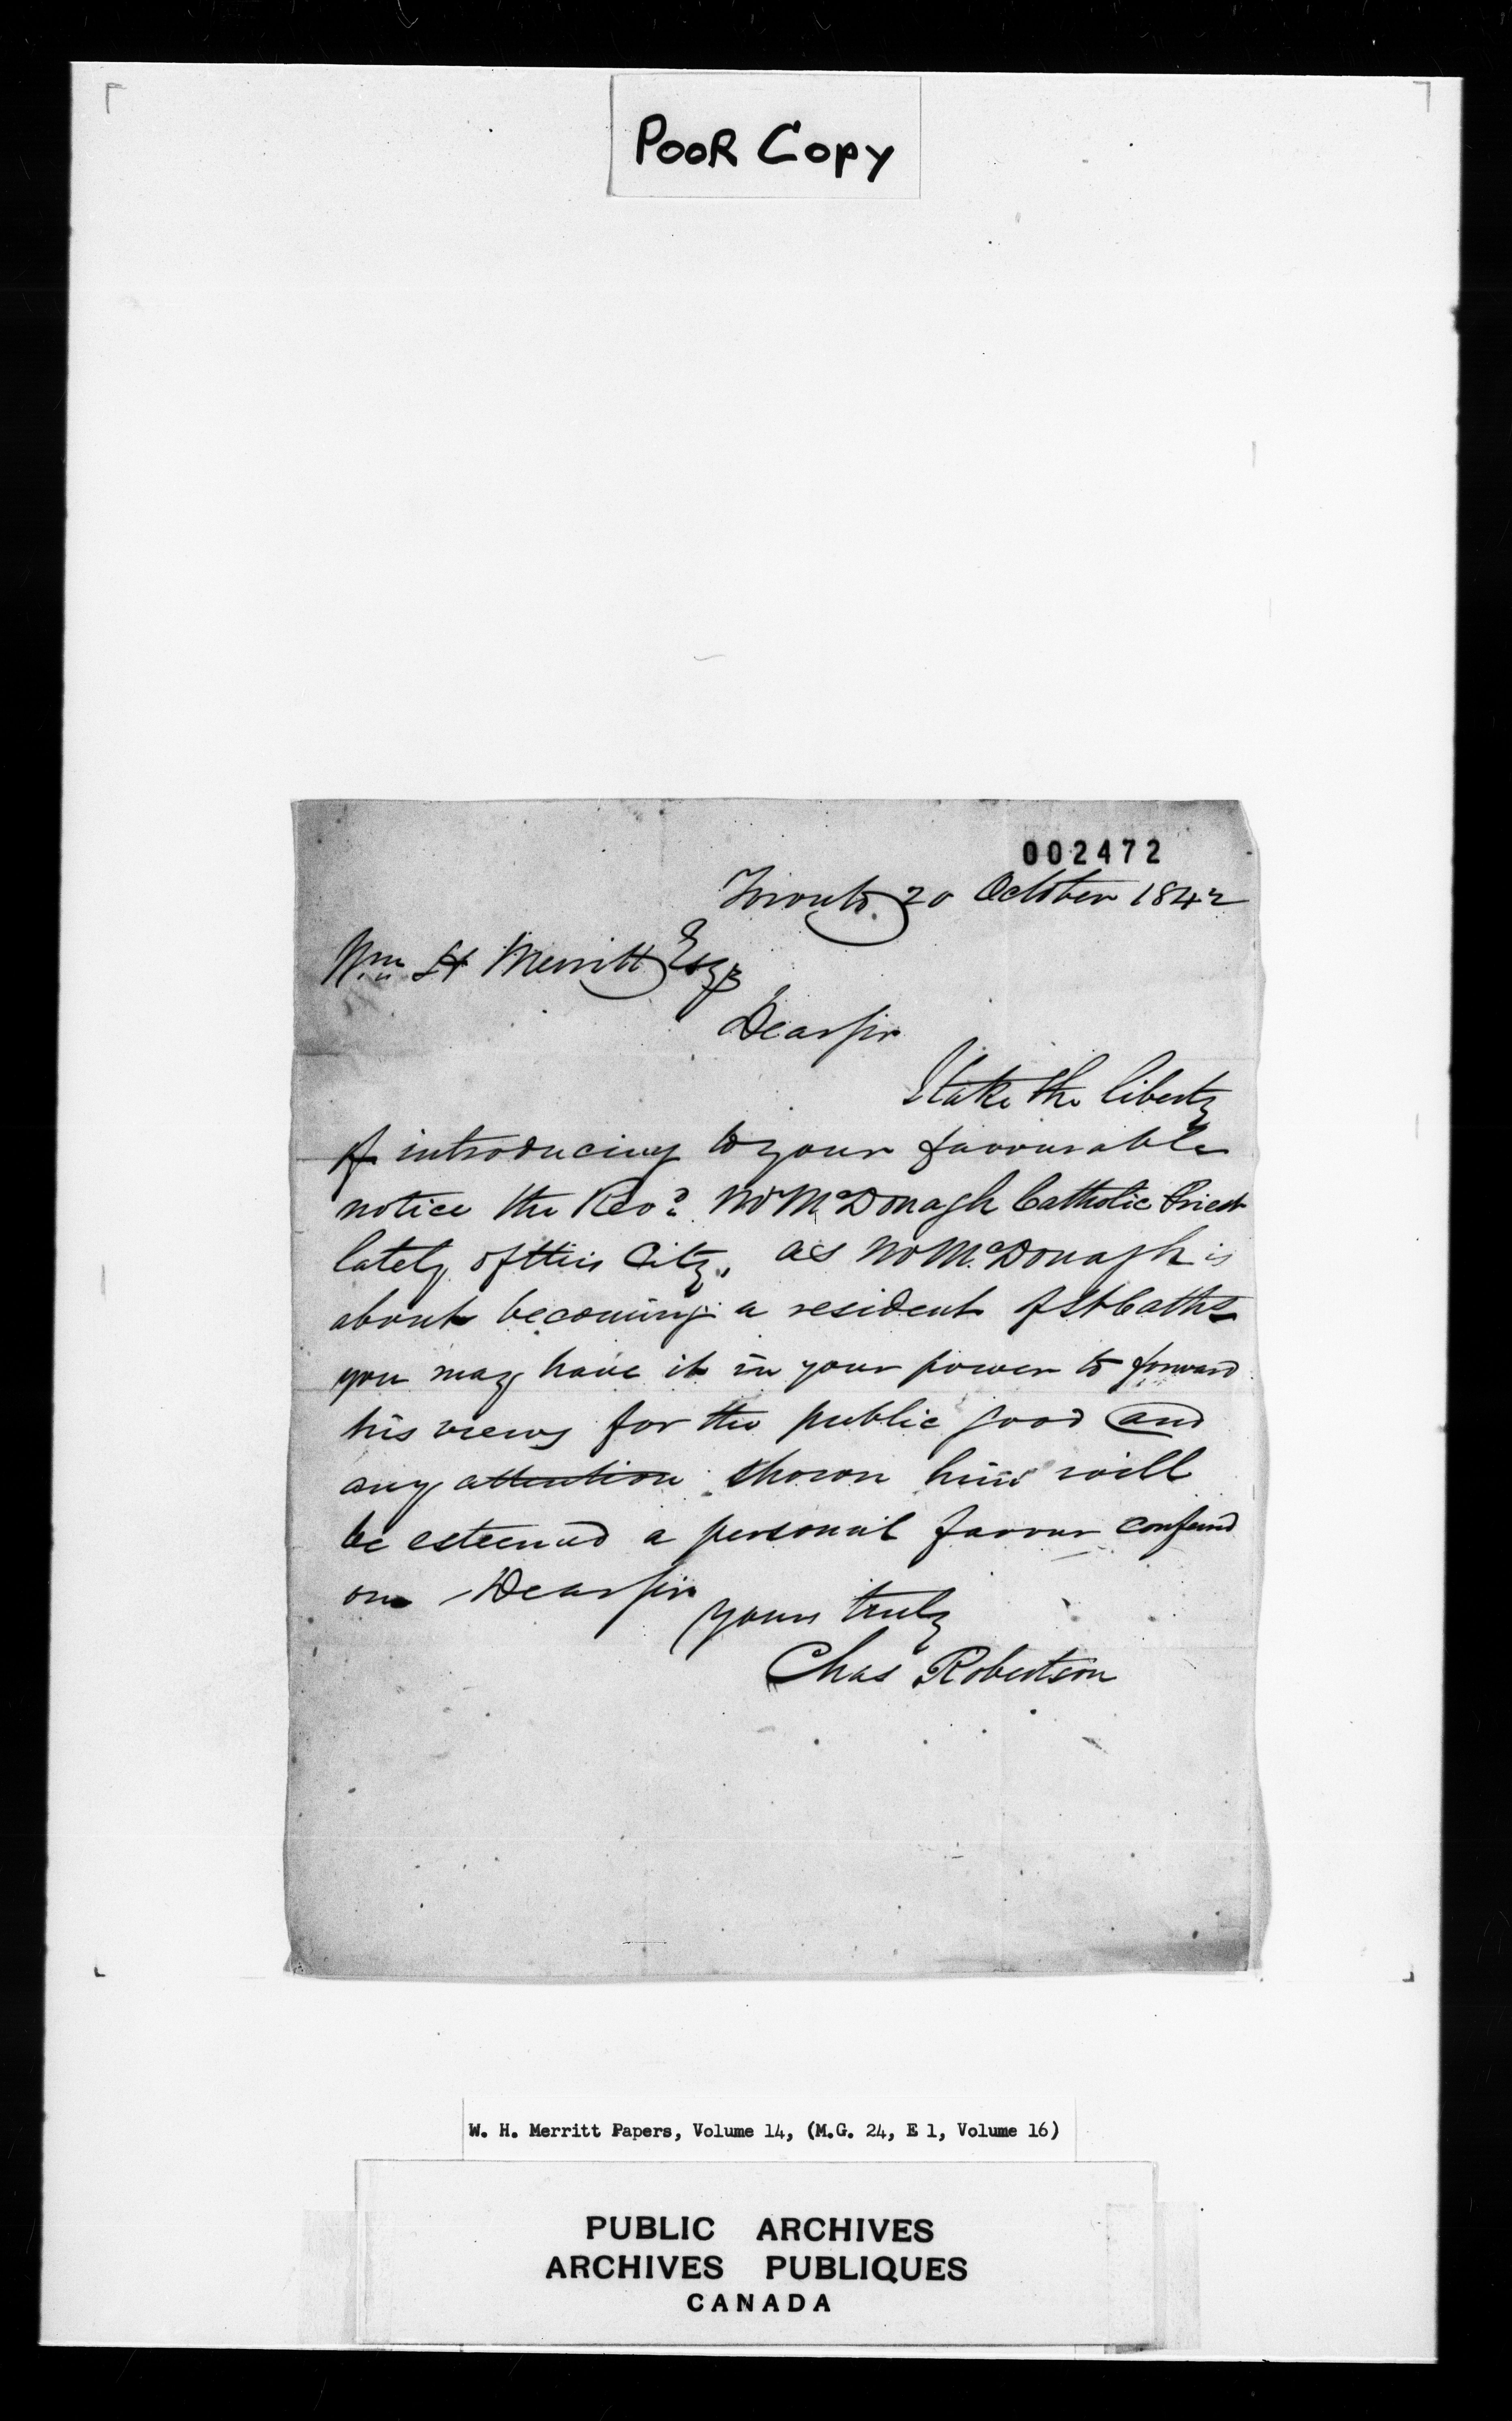 POOR Copy
002472
Toronto 20 October 1842
Wm H Merritt Esqr
Dear Sir
I take the liberty
of introducing to your favourable
notice the Revd Mr McDonagh Catholic Priest
lately of this City, as Mr McDonagh is
about becoming a resident of St Caths
you may have it in your power to forward
his views for the public good and
any attention shown him will
be esteemed a personal favour conferred
on Dear Sir
yours truly
Chas Robertson
W. H. Merritt Papers, Volume 14, (M.G. 24, E 1, Volume 16)
PUBLIC ARCHIVES
ARCHIVES PUBLIQUES
CANADA